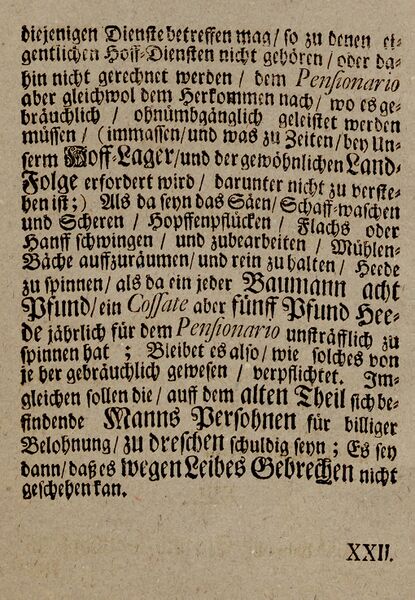 diejenigen Dienste betreffen mag / so zu denen ei-
gentlichen Hoff-Diensten nicht gehören / oder da-
hin nicht gerechnet werden / dem Pensionario
aber gleichwol dem Herkommen nach / wo es ge-
bräuchlich / ohnümbgänglich geleistet werden
müssen / (immassen / und was zu Zeiten / bey Un-
serm Hoff-Lager / und der gewöhnlichen Land-
Folge erfordert wird / darunter nicht zu verste-
hen ist ;) Als da seyn das Säen / Schaff-waschen
und Scheren / Hopffenpflücken / Flachs oder
Hanff schwingen / und zubearbeiten / Mühlen-
Bäche auffzuräumen / und rein zu halten / Heede
zu spinnen / als da ein jeder Baumann acht
Pfund / ein Cossate aber fünff Pfund Hee-
de jährlich für dem Pensionario unsträfflich zu
spinnen hat ; Bleibet es also / wie solches von
je her gebräuchlich gewesen / verpflichtet. Im-
gleichen sollen die / auff dem alten Theil sich be-
findende Manns Persohnen für billiger
Belohnung / zu dreschen schuldig seyn ; Es sey
dann / daß es wegen Leibes Gebrechen nicht
geschehen kan.
XXII.